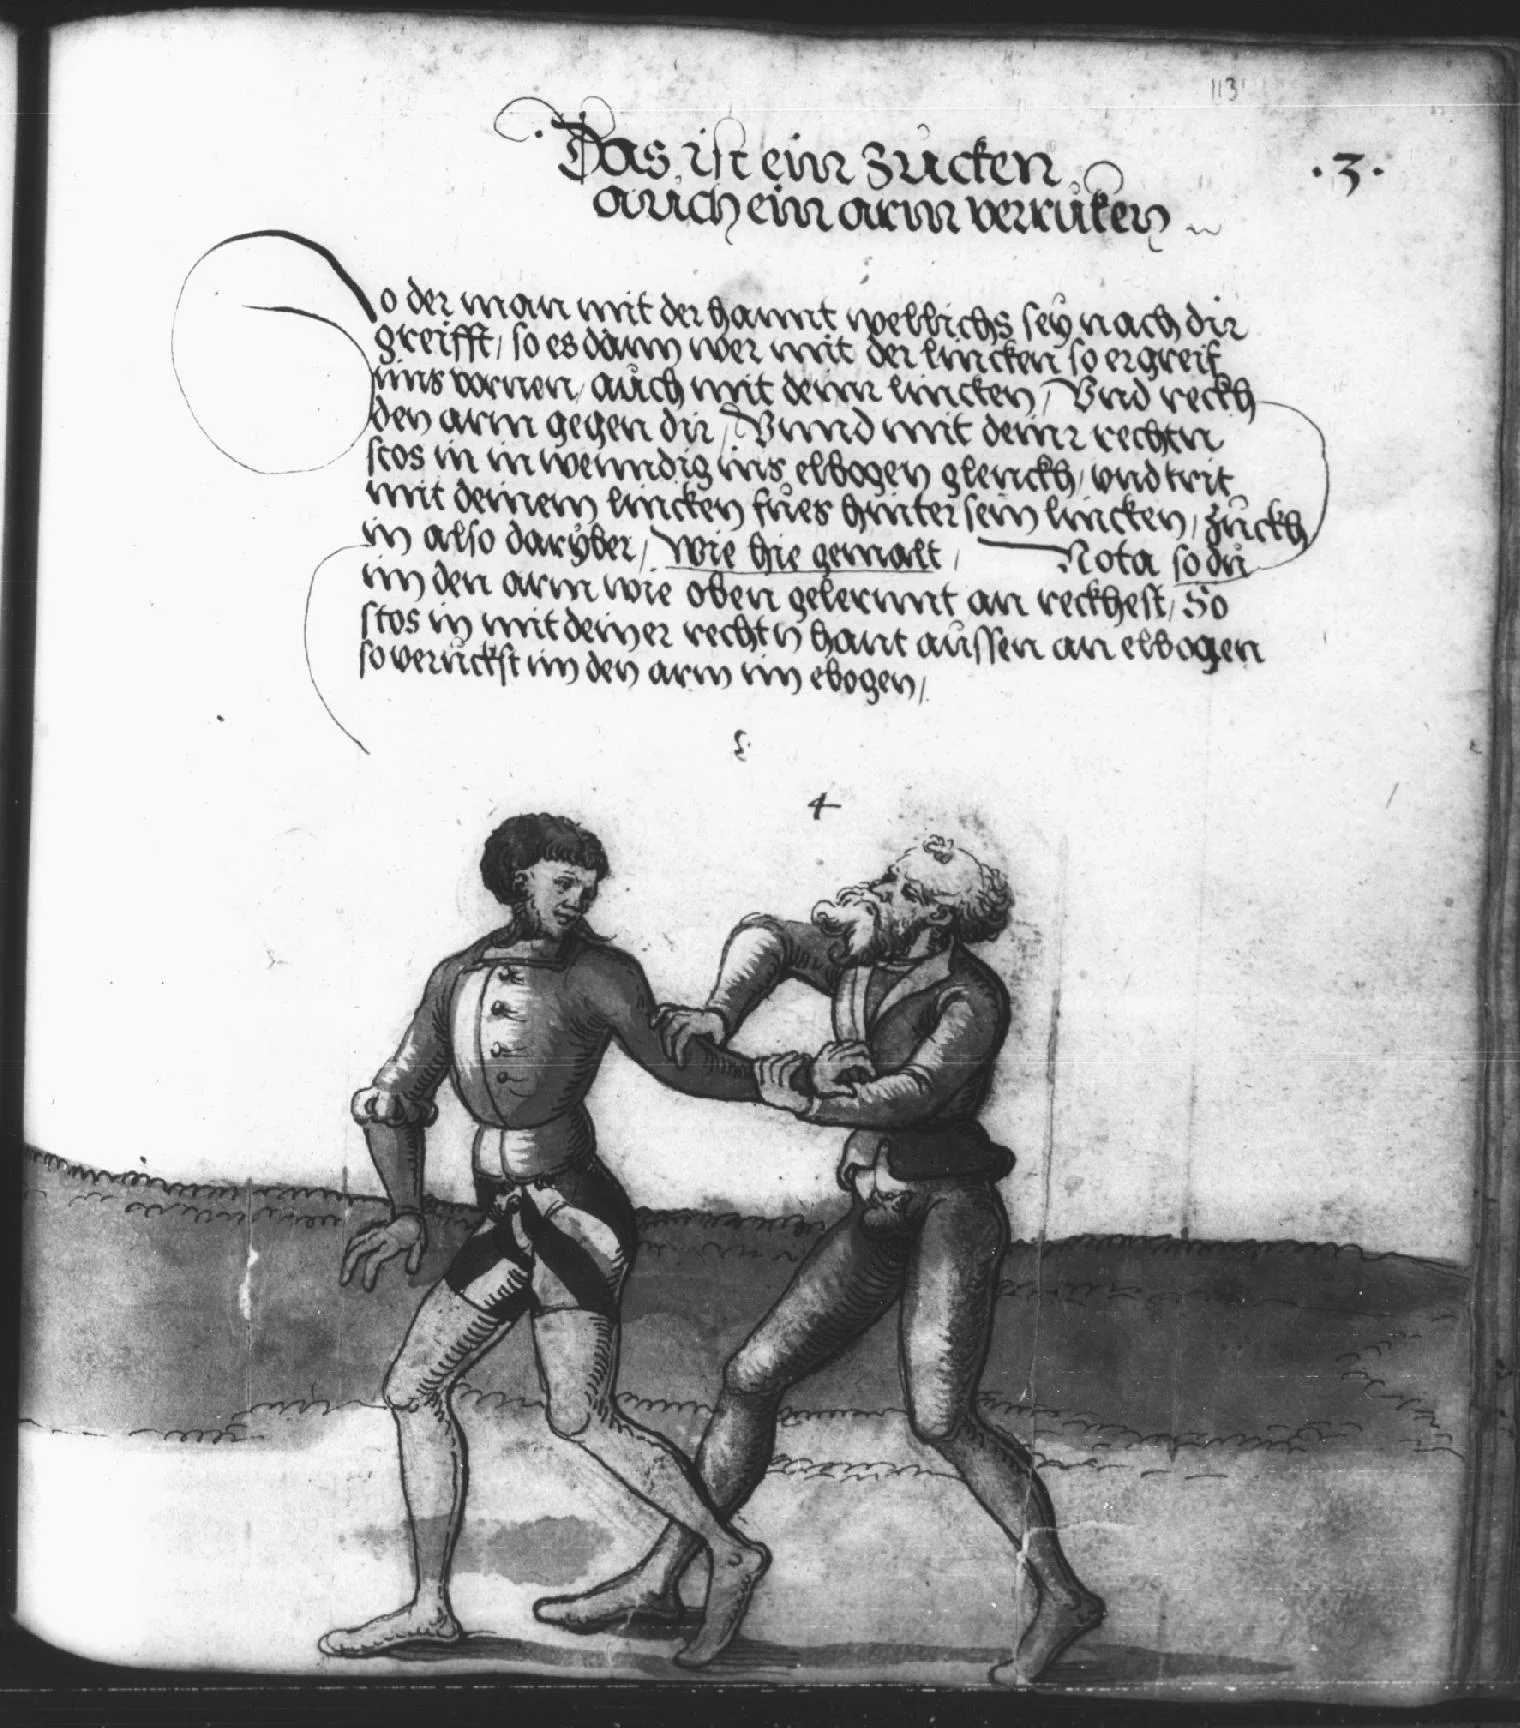 113
Das ist ein zucken
·3·
auch ein arm verruken
So der man mit der hannt wellichs sey nach dir
greifft, so es dann wer mit der lincken so ergreif
ims vornen, auch mit deinr lincken, Vnd reckh
den arm gegen dir, Vnnd mit deinr rechtn
stos in inwenndig ins elbogen glenckh, vnd trit
mit deinem lincken fues hinter sein lincken, zuckh
in also daryber, Wie hie gemalt, Nota so du
im den arm wie oben gelernnt an reckhest, So
stos in mit deiner rechtn hant aussen an elbogen
so veruckst im den arm im ebogen,
4